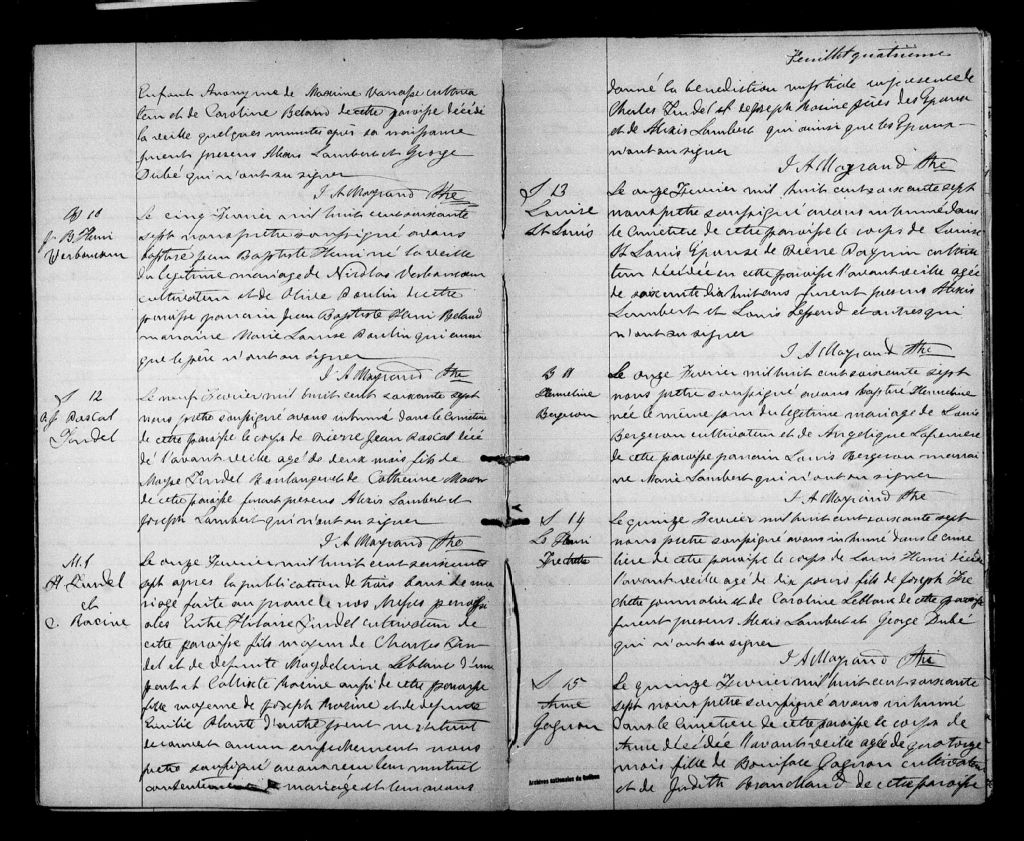 Enfant Anonyme de Maxime Vanasse cultiva
teur et de Caroline Beland de cette paroisse décédé
la veille quelques minutes après sa naissance
furent presens Alexis Lambert et George
Dubé qui n'ont su signer
J A Mayrand Ptre
B 10
J. B. Henri
Verboncoeur
Le cinq Fevrier mil huit cent soixante
sept nous prêtre soussigné avons
baptisé Jean Baptiste Henri né la veille
du légitime mariage de Nicolas Verboncoeur
cultivateur et de Olive Boulin de cette
paroisse parrain Jean Baptiste Henri Beland
marraine Marie Louise Boulin qui ainsi
que le père n'ont su signer
J A Mayrand Ptre
S 12
Pascal
Zindel
Le neuf Fevrier mil huit cent soixante sept
nous prêtre soussigné avons inhumé dans le Cimetière
de cette paroisse le corps de Pierre Jean Pascal décé
dé l'avant veille agé de deux mois fils de
Moyse Zindel Boulanger et de Catherine
de cette paroisse furent presens Alexis Lambert et
Joseph Lambert qui n'ont su signer
J A Mayrand Ptre
M. 1
H Zindel
et
C. Racine
Le onze Fevrier mil huit cent soixante
sept après la publication de trois bans de ma
riage faite au prone de nos Messes paroissi
ales Entre Hilaire Zindel cultivateur de
cette paroisse fils majeur de Charles Zin
del et de defunte Magdeleine Leblanc d'une
part et Calliste Racine aussi de cette paroisse
fille mineure de Joseph Racine et de defunte
Emilie Plante d'autre part ne s'étant
decouvert aucun empêchement nous
prêtre soussigné avons reçu leur mutuel
consentement de mariage et leur avons
Feuillet quatrième
donné la bénédiction nuptiale en présence de
Charles Zindel et de Joseph Racine pères des Epoux
et de Alexis Lambert qui ainsi que les Epoux
n'ont su signer
J A Mayrand Ptre
S 13
Louise
St Louis
Le onze Fevrier mil huit cent soixante sept
nous prêtre soussigné avons inhumé dans
le Cimetière de cette paroisse le corps de Louise
St Louis Epouse de Pierre Paquin cultiva
teur décédée en cette paroisse l'avant veille agée
de soixante dix huit ans furent presens Alexis
Lambert et Louis et autres qui
n'ont su signer
J A Mayrand Ptre
B 11
Hermeline
Bergeron
Le onze Fevrier mil huit cent soixante sept
nous prêtre soussigné avons Baptisé Hermeline
née le même jour du légitime mariage de Louis
Bergeron cultivateur et de Angelique Laferriere
de cette paroisse parrain Louis Bergeron marrai
ne Marie Lambert qui n'ont su signer
J A Mayrand Ptre
S 14
Ls Henri
Frechette
Le quinze Fevrier mil huit cent soixante sept
nous prêtre soussigné avons inhumé dans le cime
tière de cette paroisse le corps de Louis Henri décédé
l'avant veille agé de dix jours fils de Joseph Fre
chette journalier et de Caroline Leblanc de cette paroisse
furent presens Alexis Lambert et George Dubé
qui n'ont su signer
J A Mayrand Ptre
S 15
Anne
Gagnon
Le quinze Fevrier mil huit cent soixante
sept nous prêtre soussigné avons inhumé
dans le Cimetière de cette paroisse le corps de
Anne décédée l'avant veille agée de quatorze
mois fille de Boniface Gagnon cultivateur
et de Judith Branchaud de cette paroisse
Archives nationales du Québec